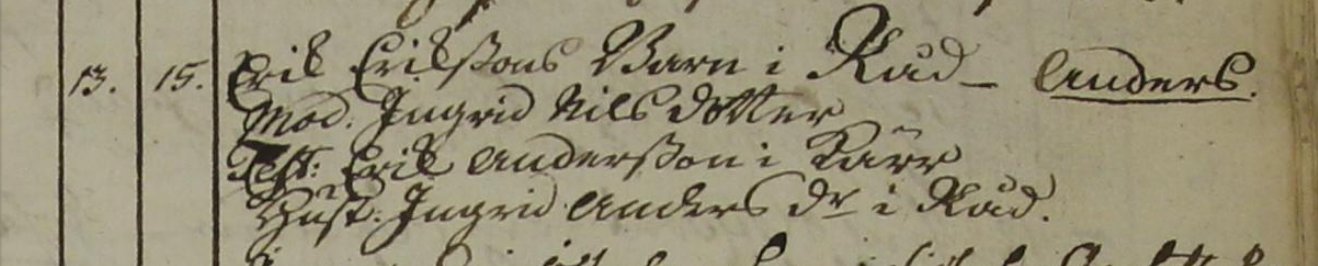 13. 15. Erik Erikßons Barn i Råd - Anders.
Mod. Ingrid Nils dotter
Test: Erik Anderßon i Kärr
Hust: Ingrid Anders dr i Råd.